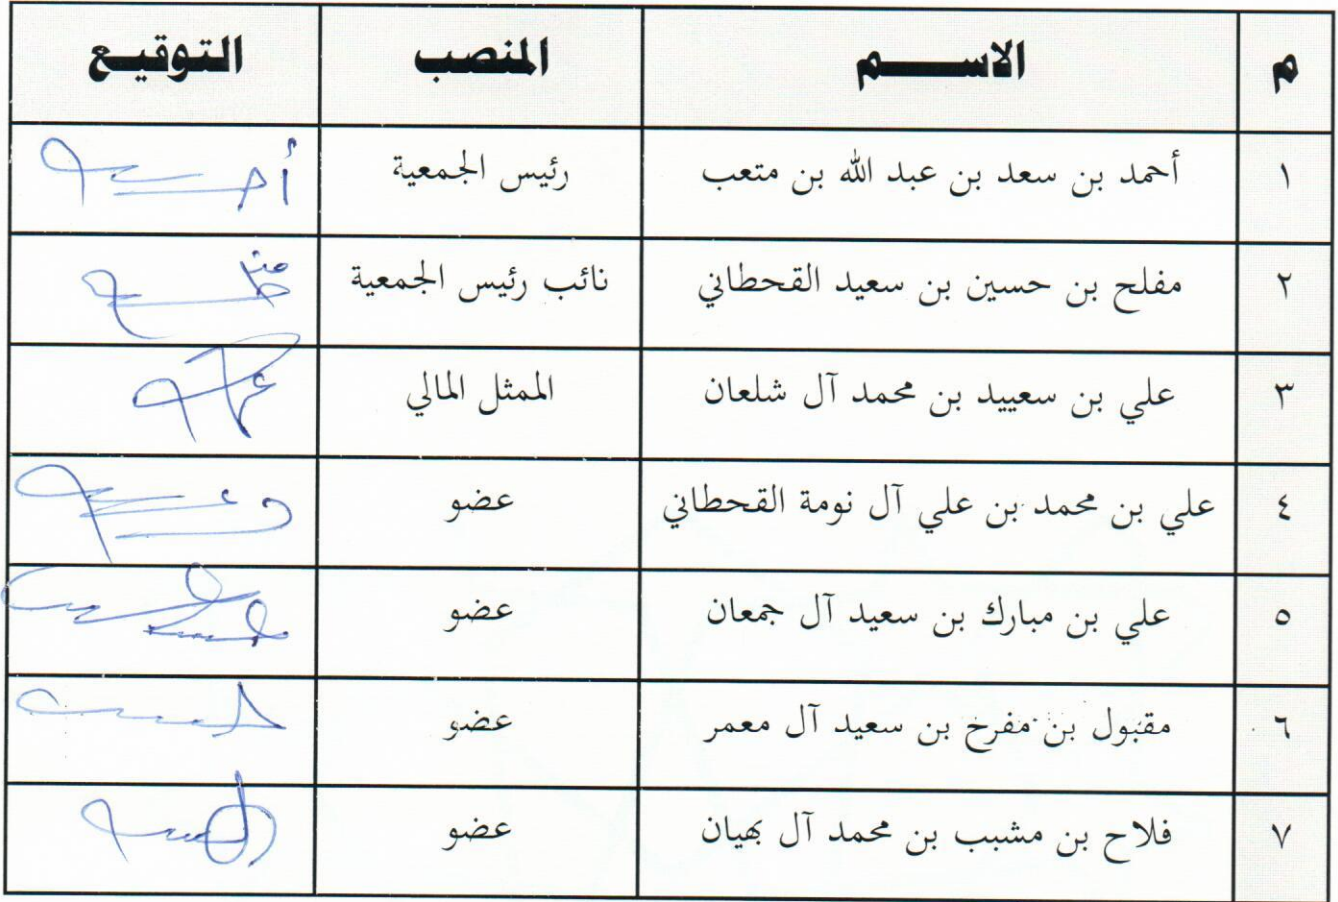 م الاسم المنصب التوقيع
١ أحمد بن سعد بن عبد الله بن متعب رئيس الجمعية
٢ مفلح بن حسين بن سعيد القحطاني نائب رئيس الجمعية
٣ علي بن سعييد بن محمد آل شلعان الممثل المالي
٤ علي بن محمد بن علي آل نومة القحطاني عضو
٥ علي بن مبارك بن سعيد آل جمعان عضو
٦ مقبول بن مفرح بن سعيد آل معمر عضو
٧ فلاح بن مشبب بن محمد آل بهيان عضو